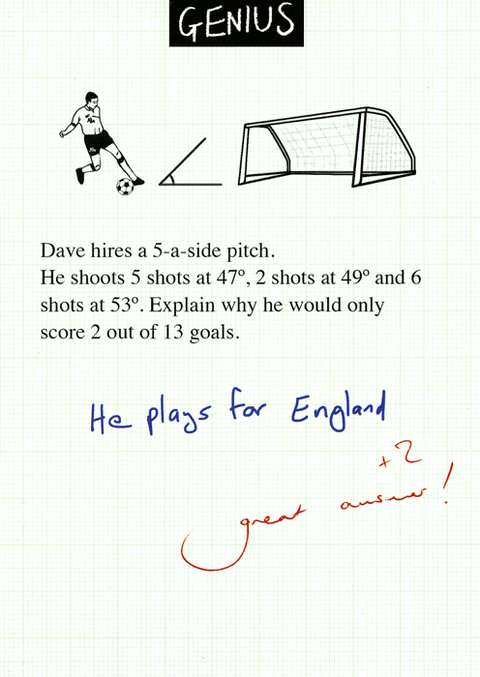 GENIUS
Dave hires a 5-a-side pitch.
He shoots 5 shots at 47º, 2 shots at 49º and 6
shots at 53º. Explain why he would only
score 2 out of 13 goals.
He plays for England
+2
great answer!